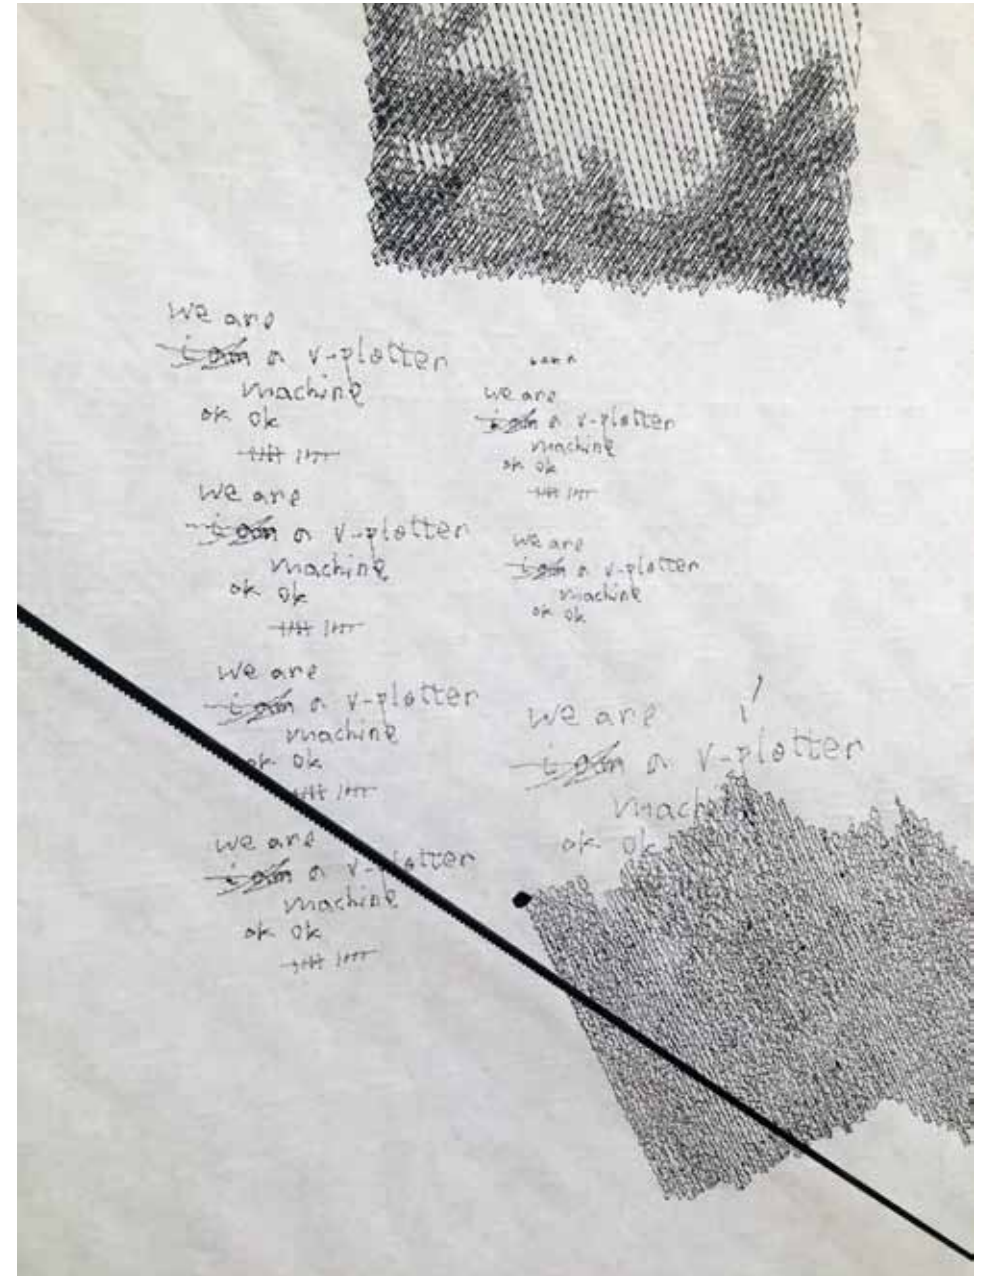 we are
i am a v-plotter
machine
ok ok
we are
i am a v-plotter
machine
ok ok
we are
i am a v-plotter
machine
ok ok
we are
i am a v-plotter
machine
ok ok
we are
i am a v-plotter
machine
ok ok
we are
i am a v-plotter
machine
ok ok
we are
i am a v-plotter
machine
ok ok